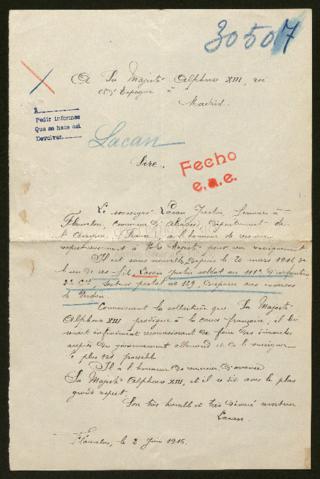 30507
A Sa Majesté Alphonse XIII, roi
d'Espagne à
Madrid.
A
Pedir informes
Que se haga así
Devolver
Lacan
Sire,
Fecho
e.a.e.
Le soussigné Lacan Justin,
département de
l'Aveyron (France), a l'honneur de
respectueusement à Votre Majesté pour un renseignement
Il est sans nouvelles depuis le 20 mars 1916 de
l'un de ses fils Lacan soldat au 111e d'infanterie
secteur postal no 119, disparu aux environs
de Verdun.
Connaissant la sollicitude que Sa Majesté
Alphonse XIII prodigue à la cause française, il lui
serait infiniment reconnaissant de faire des démarches
auprès du gouvernement allemand et de le renseigner
le plus tôt possible.
Il a l'honneur de remercier d'avance
Sa Majesté Alphonse XIII, et il se dit avec le plus
grand respect
Son très humble et très dévoué serviteur
Lacan
le 2 Juin 1916.